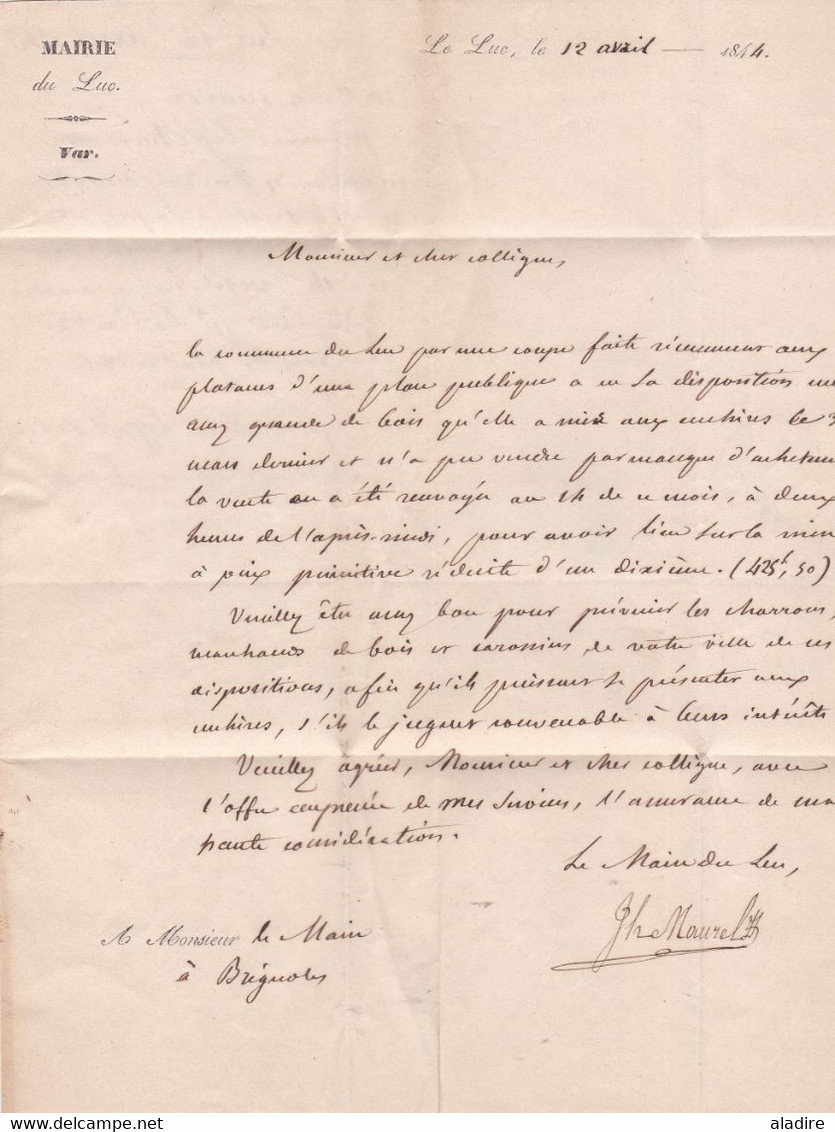 MAIRIE
du Luc.
Var.
Le Luc, le 12 avril 1844.
Monsieur et cher collègue,
la commune du Luc par une coupe faite récemment aux
platanes d'une place publique a eu à sa disposition une
assez grande de bois qu'elle a mis aux enchères le 3
mars dernier et n'a pu vendre par manque d'acheteurs
la vente en a été renvoyée au 14 de ce mois, à deux
heures de l'après-midi, pour avoir lieu sur la mise
à prix primitive réduite d'un dixième. (425f, 50)
Veuillez être assez bon pour prévenir les charrons,
marchands de bois et carossiers, de votre ville de ces
dispositions, afin qu'ils puissent se présenter aux
enchères, s'ils le jugent convenable à leurs intérêts
Veuillez agréer, Monsieur et cher collègue, avec
l'offre empressée de mes services, l'assurance de ma
haute considération.
Le Maire du Luc,
Jh Maurel
A Monsieur le Maire
à Brignoles
aladire